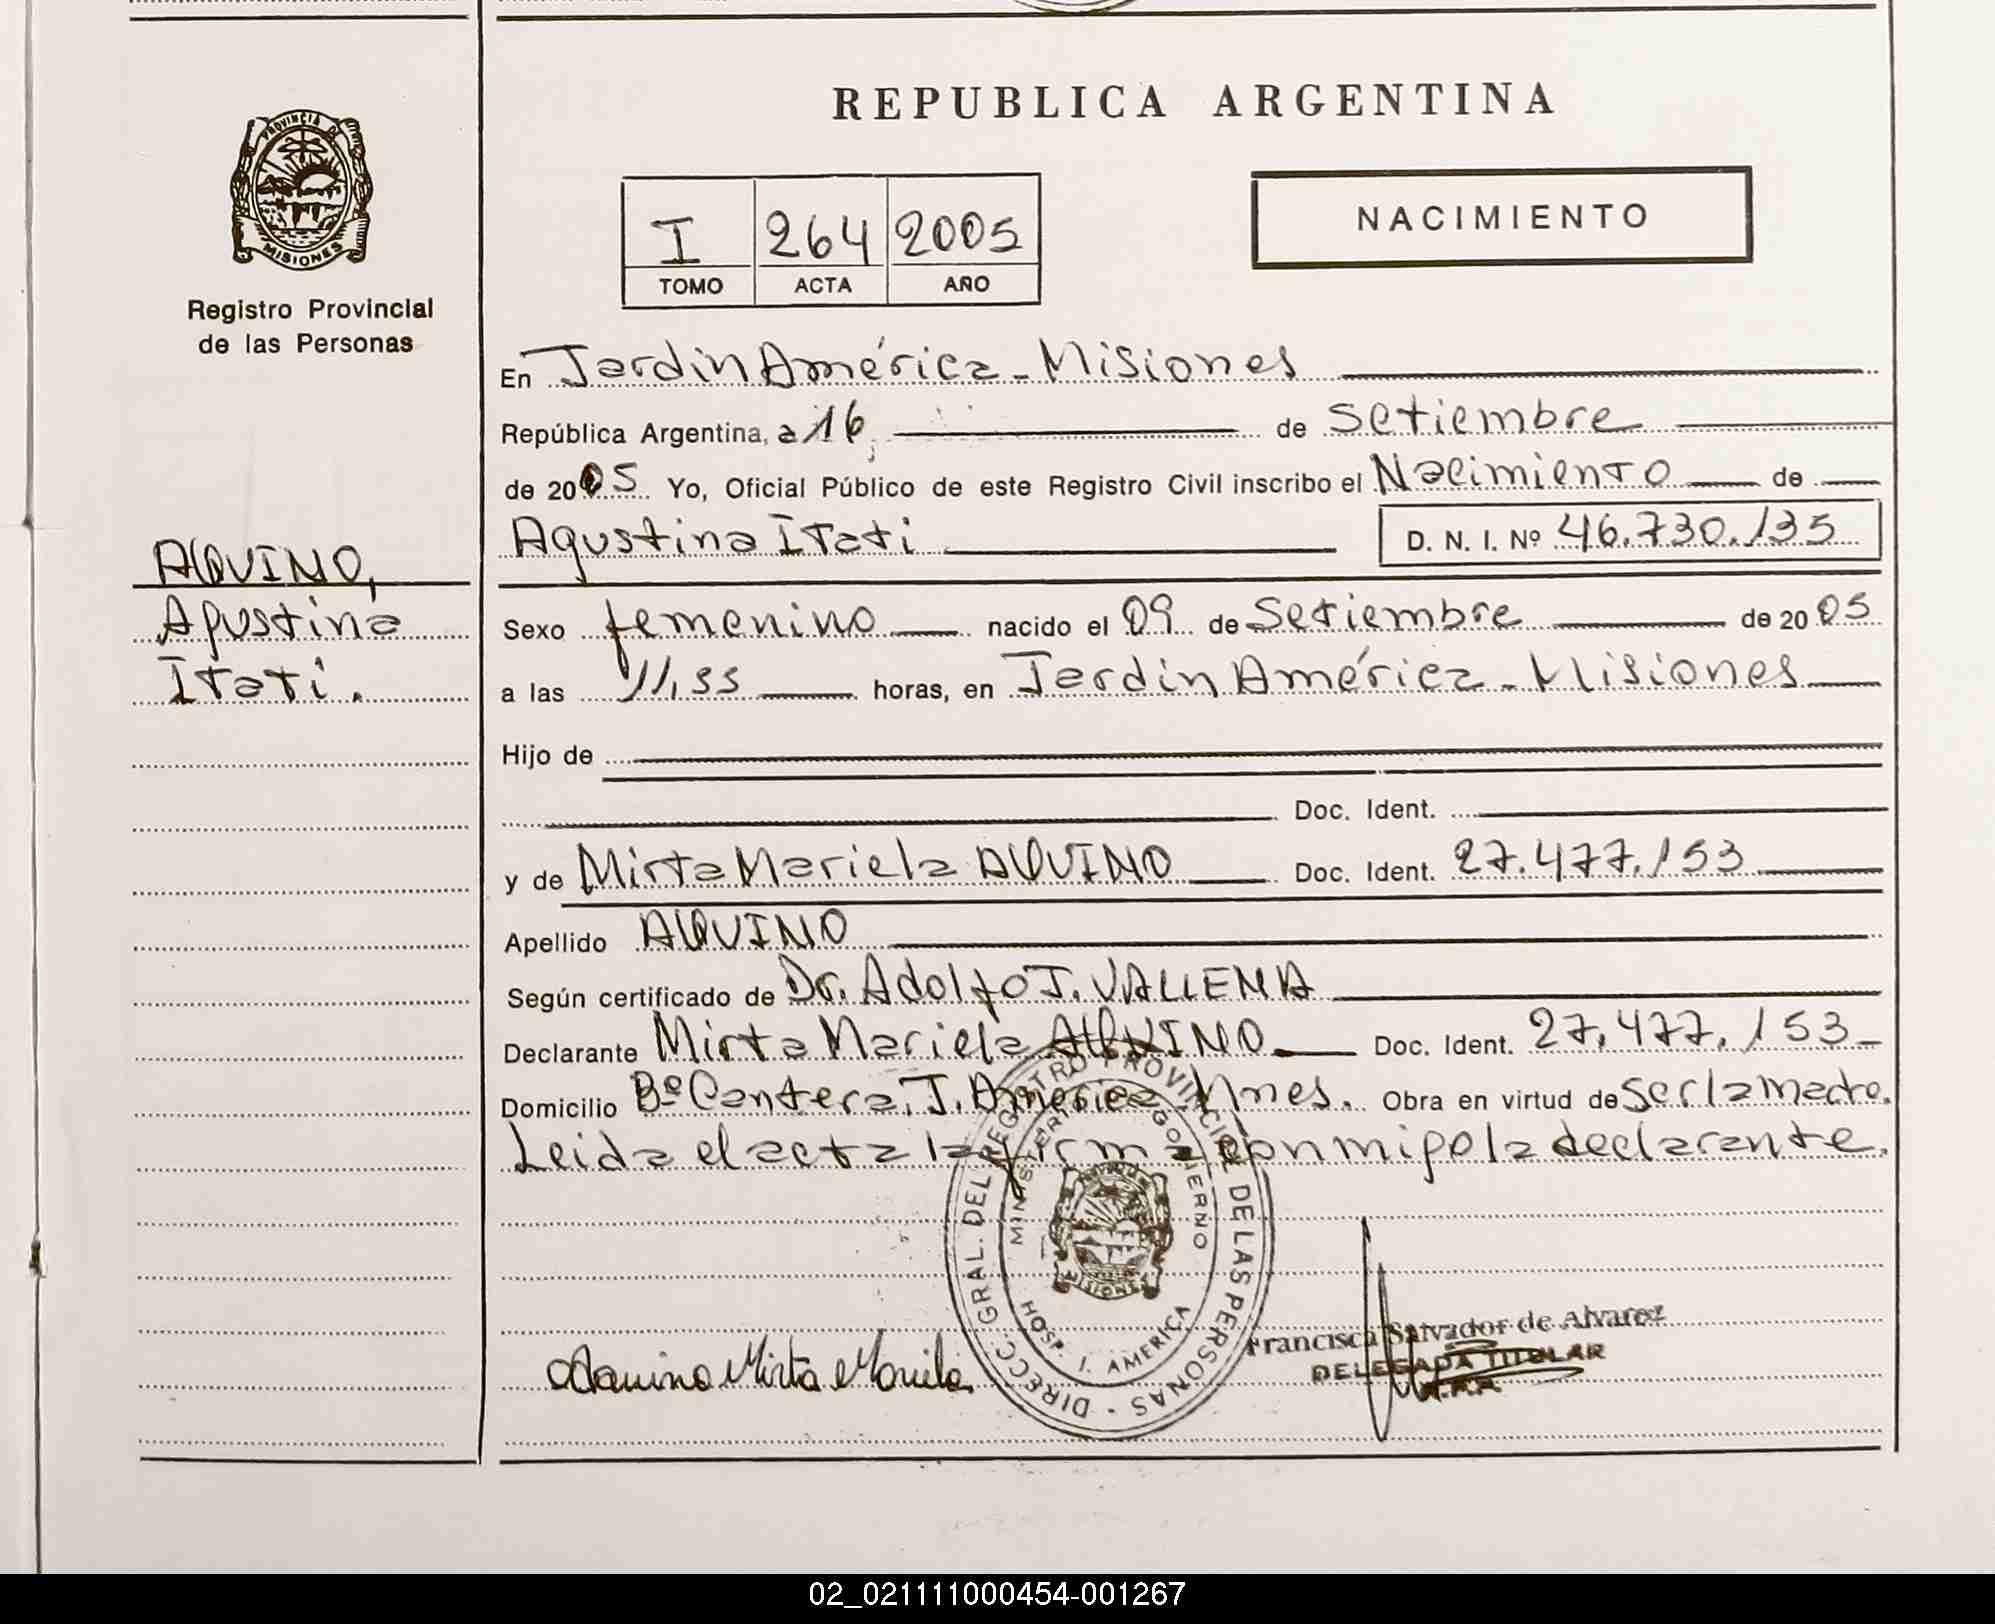 REPUBLICA ARGENTINA
PROVINCIA DE
MISIONES
Registro Provincial
de las Personas
I 264 2005
TOMO ACTA AÑO
NACIMIENTO
En Jardin América - Misiones
República Argentina, a 16 de Setiembre
de 2005 Yo, Oficial Público de este Registro Civil inscribo el Nacimiento de
Agustina Itati D. N. I. Nº 46.730.135
AQUINO,
Agustina
Itati.
Sexo femenino nacido el 09 de Setiembre de 2005
a las 11,55 horas, en Jardin América - Misiones
Hijo de
Doc. Ident.
y de Mirta Mariela AQUINO Doc. Ident. 27.477.153
Apellido AQUINO
Según certificado de Dr. Adolfo J. VALLENA
Declarante Mirta Mariela AQUINO Doc. Ident. 27.477.153
Domicilio Bº Cantera. J. América Mnes. Obra en virtud de ser la madre.
Leida el acta la firma con migo la declarante.
DIRECC. GRAL. DEL REGISTRO PROVINCIAL DE LAS PERSONAS
MINISTERIO GOBIERNO
HOSP. J. AMERICA
MISIONES
Aquino Mirta Mariela
Francisca Salvador de Alvarez
DELEGADA TITULAR
02_021111000454-001267